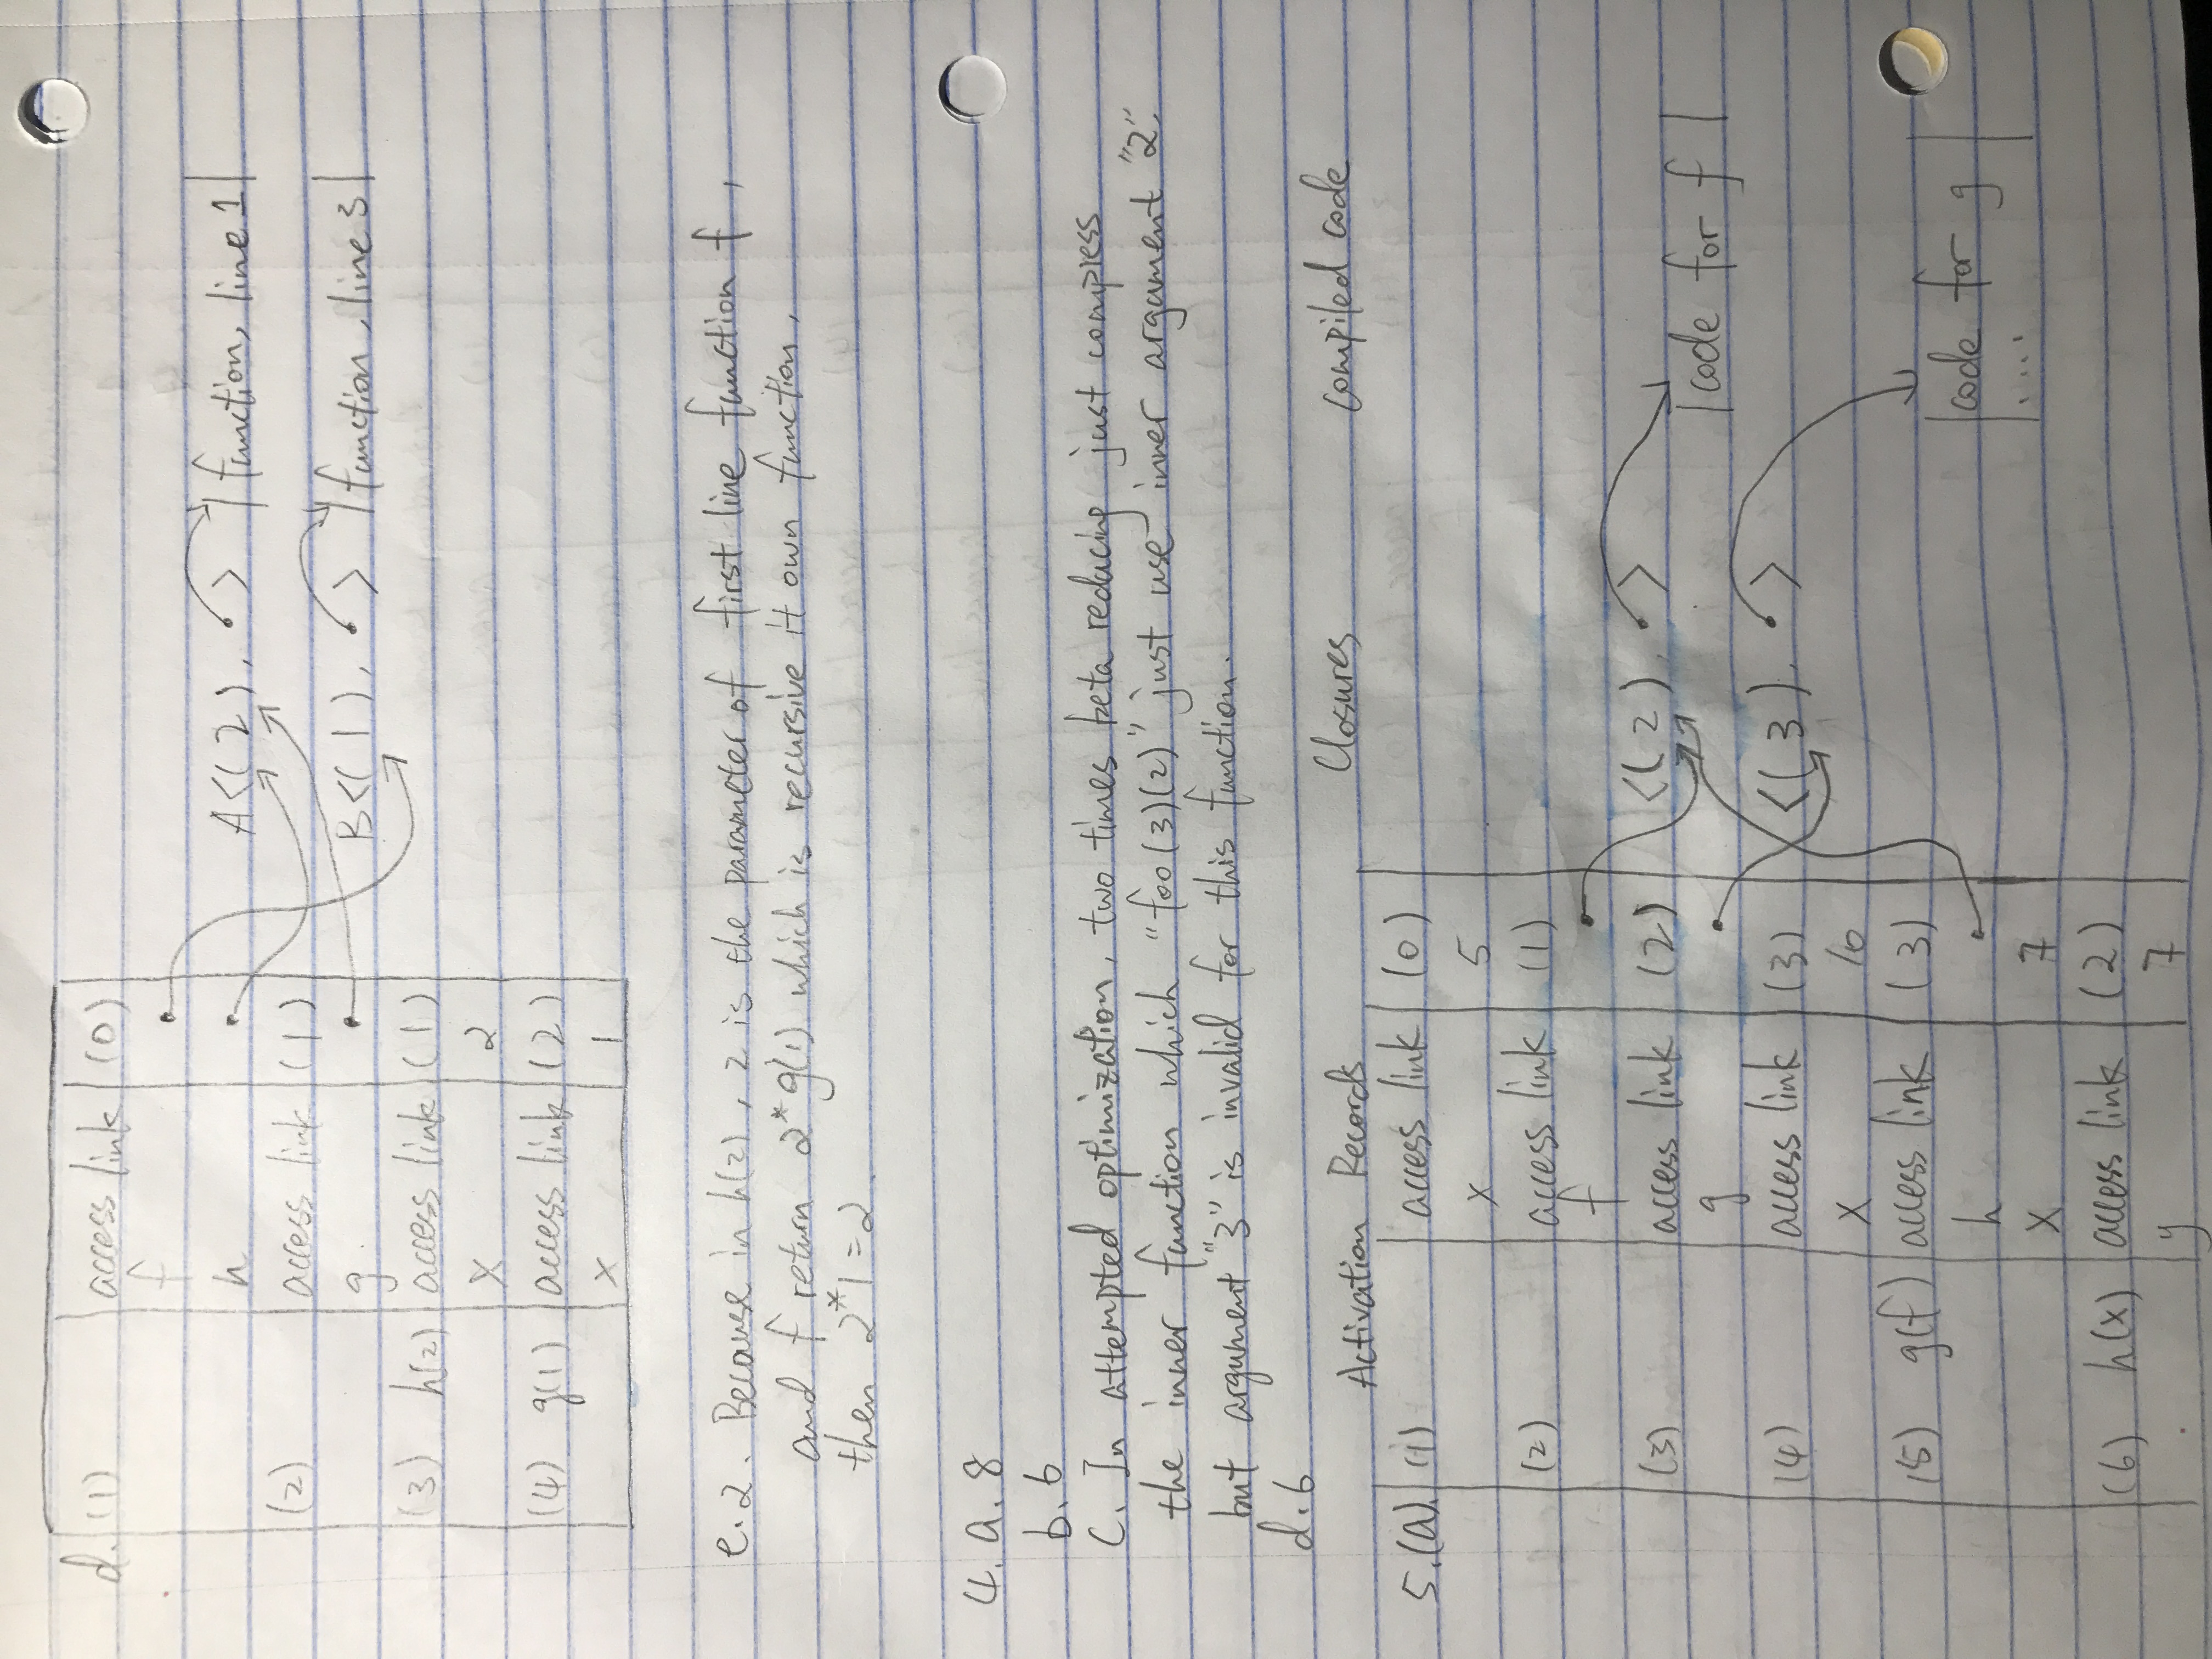 d. (1) access link (0)
f
h A<(2), • > |function, line 1|
(2) access link (1)
g B<(1), • > |function, line 3|
(3) h(2) access link (1)
x 2
(4) g(1) access link (2)
x 1
e. 2. Because in h(2), 2 is the parameter of first line function f,
and f return 2*g(1) which is recursive it own function,
then 2*1=2.
4. a. 8
b. 6
C. In attempted optimization, two times beta reducing just compress
the inner function which "foo(3)(2)" just use inner argument "2".
but argument "3" is invalid for this function.
d. 6
Activation Records Closures Compiled code
5. (a). (1) access link (0)
x 5
(2) access link (1)
f
(3) access link (2) <(2), • >
g |code for f|
(4) access link (3) <(3), • >
x 10
(5) g(f) access link (3)
h |code for g
x 7 ....|
(6) h(x) access link (2)
y 7